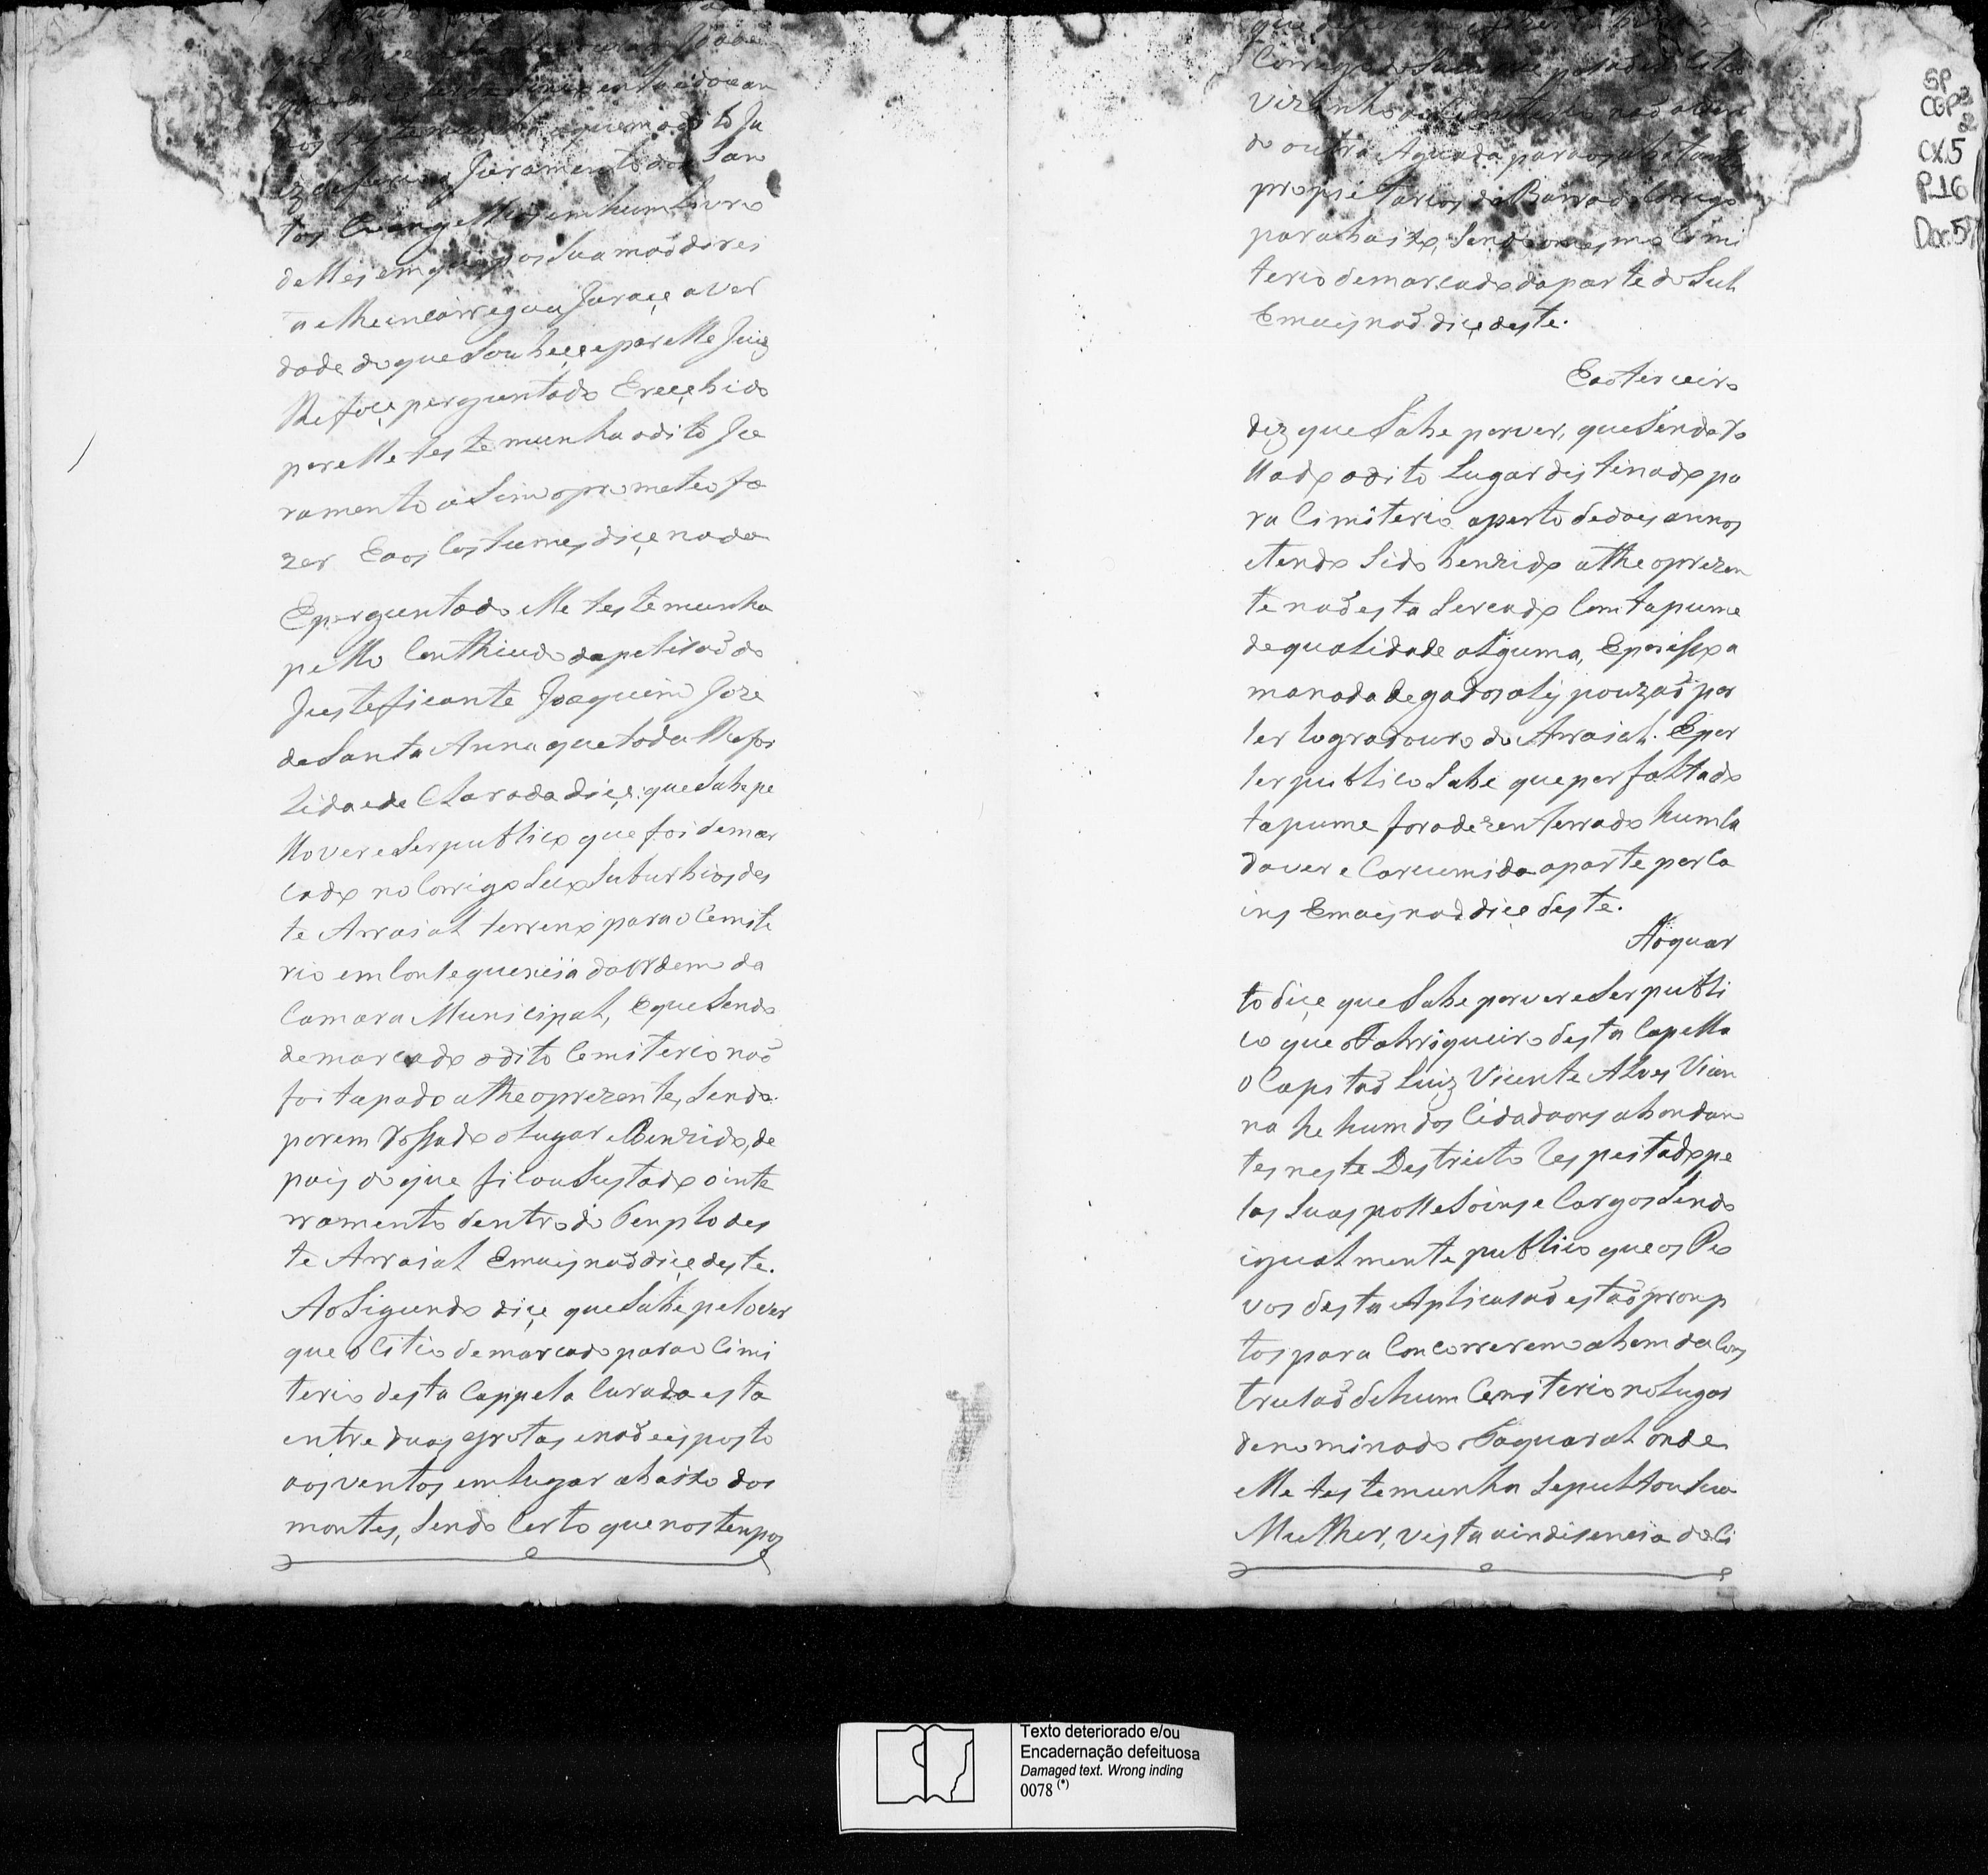 tos Evangelhos em hum Livro
delles em que pos Sua maõ direi
ta elhe incarregou Juraçe aver
dade do que Soubeçe epor elle Juiz
lhe foçe perguntado Ereçebido
por elle testemunha odito Ju
ramento aSim oprometeo fa
zer Eaos Costumes diçe nada
Eperguntado elle testemunha
pello Conthiudo dapetisaõ do
Justeficante Joaquim Joze
de Santa Anna que toda lhe foi
lida ede Clarada diçe: que Sabe pe
llo ver e Ser publico que foi demar
cado no Corrigo Seco Suburbios des
te Arraial terreno para o Cemite
rio em Consequencia da Ordem da
Camara Municipal, Eque Sendo
demarcado odito Cemiterio naõ
foi tapado athe oprezente, Sendo
porem Rossado olugar eBenzido, de
pois do que ficou Sustado o inte
rramento dentro do Templo des
te Arraial Emais naõ diçe deste.
Ao Sigundo diçe que Sabe pelo ver
que o Citio demarcado para o Cimi
terio desta Cappela Curada esta
entre duas grotas enaõ éisposto
aos ventos em lugar abaixo dos
montes, Sendo Certo que nos tempos
do outra Aguada para os abitantes
propietarios da Barra do Corrigo
para baixo, Sendo omesmo Cimi
terio demarcado da parte do Sul
Emais naõ diçe deste.
Eao terceiro
diz que Sabe por ver, que Sendo Ro
çado odito Lugar distinado pa
ra Cimiterio aperto de dois annos
eTendo Sido benzido athe oprezen
te naõ esta Sercado Com tapume
de qualidade alguma, Epor isso a
manada de gados aly pouzaõ por
Ser logradouro do Arraial. Epor
Ser publico Sabe que por falta do
tapume fora dezenterrado hum Ca
daver e Carcumida aparte por Ca
ins Emais naõ diçe deste.
Aoquar
to diçe que Sabe por ver e Ser publi
co que o Fabriqueiro desta Capella
o Capitaõ Luiz Vicente Alves Vian
na he hum dos Cidadaons abondan
tes neste Destricto Respeitado pe
las Suas posseSoins e Cargos Sendo
igualmente publico que os Po
vos desta Aplicasaõ estaõ promp
tos para Concorrerem abem da Cons
trusaõ de hum Cemiterio no Lugar
denominado Taquaral onde
elle testemunha Sepultou Sua
Mulher, vista aindisencia do Ci
SP
CGP3
CX.5
P.16
Doc.5
Texto deteriorado e/ou
Encadernação defeituosa
Damaged text. Wrong inding
0078 (*)